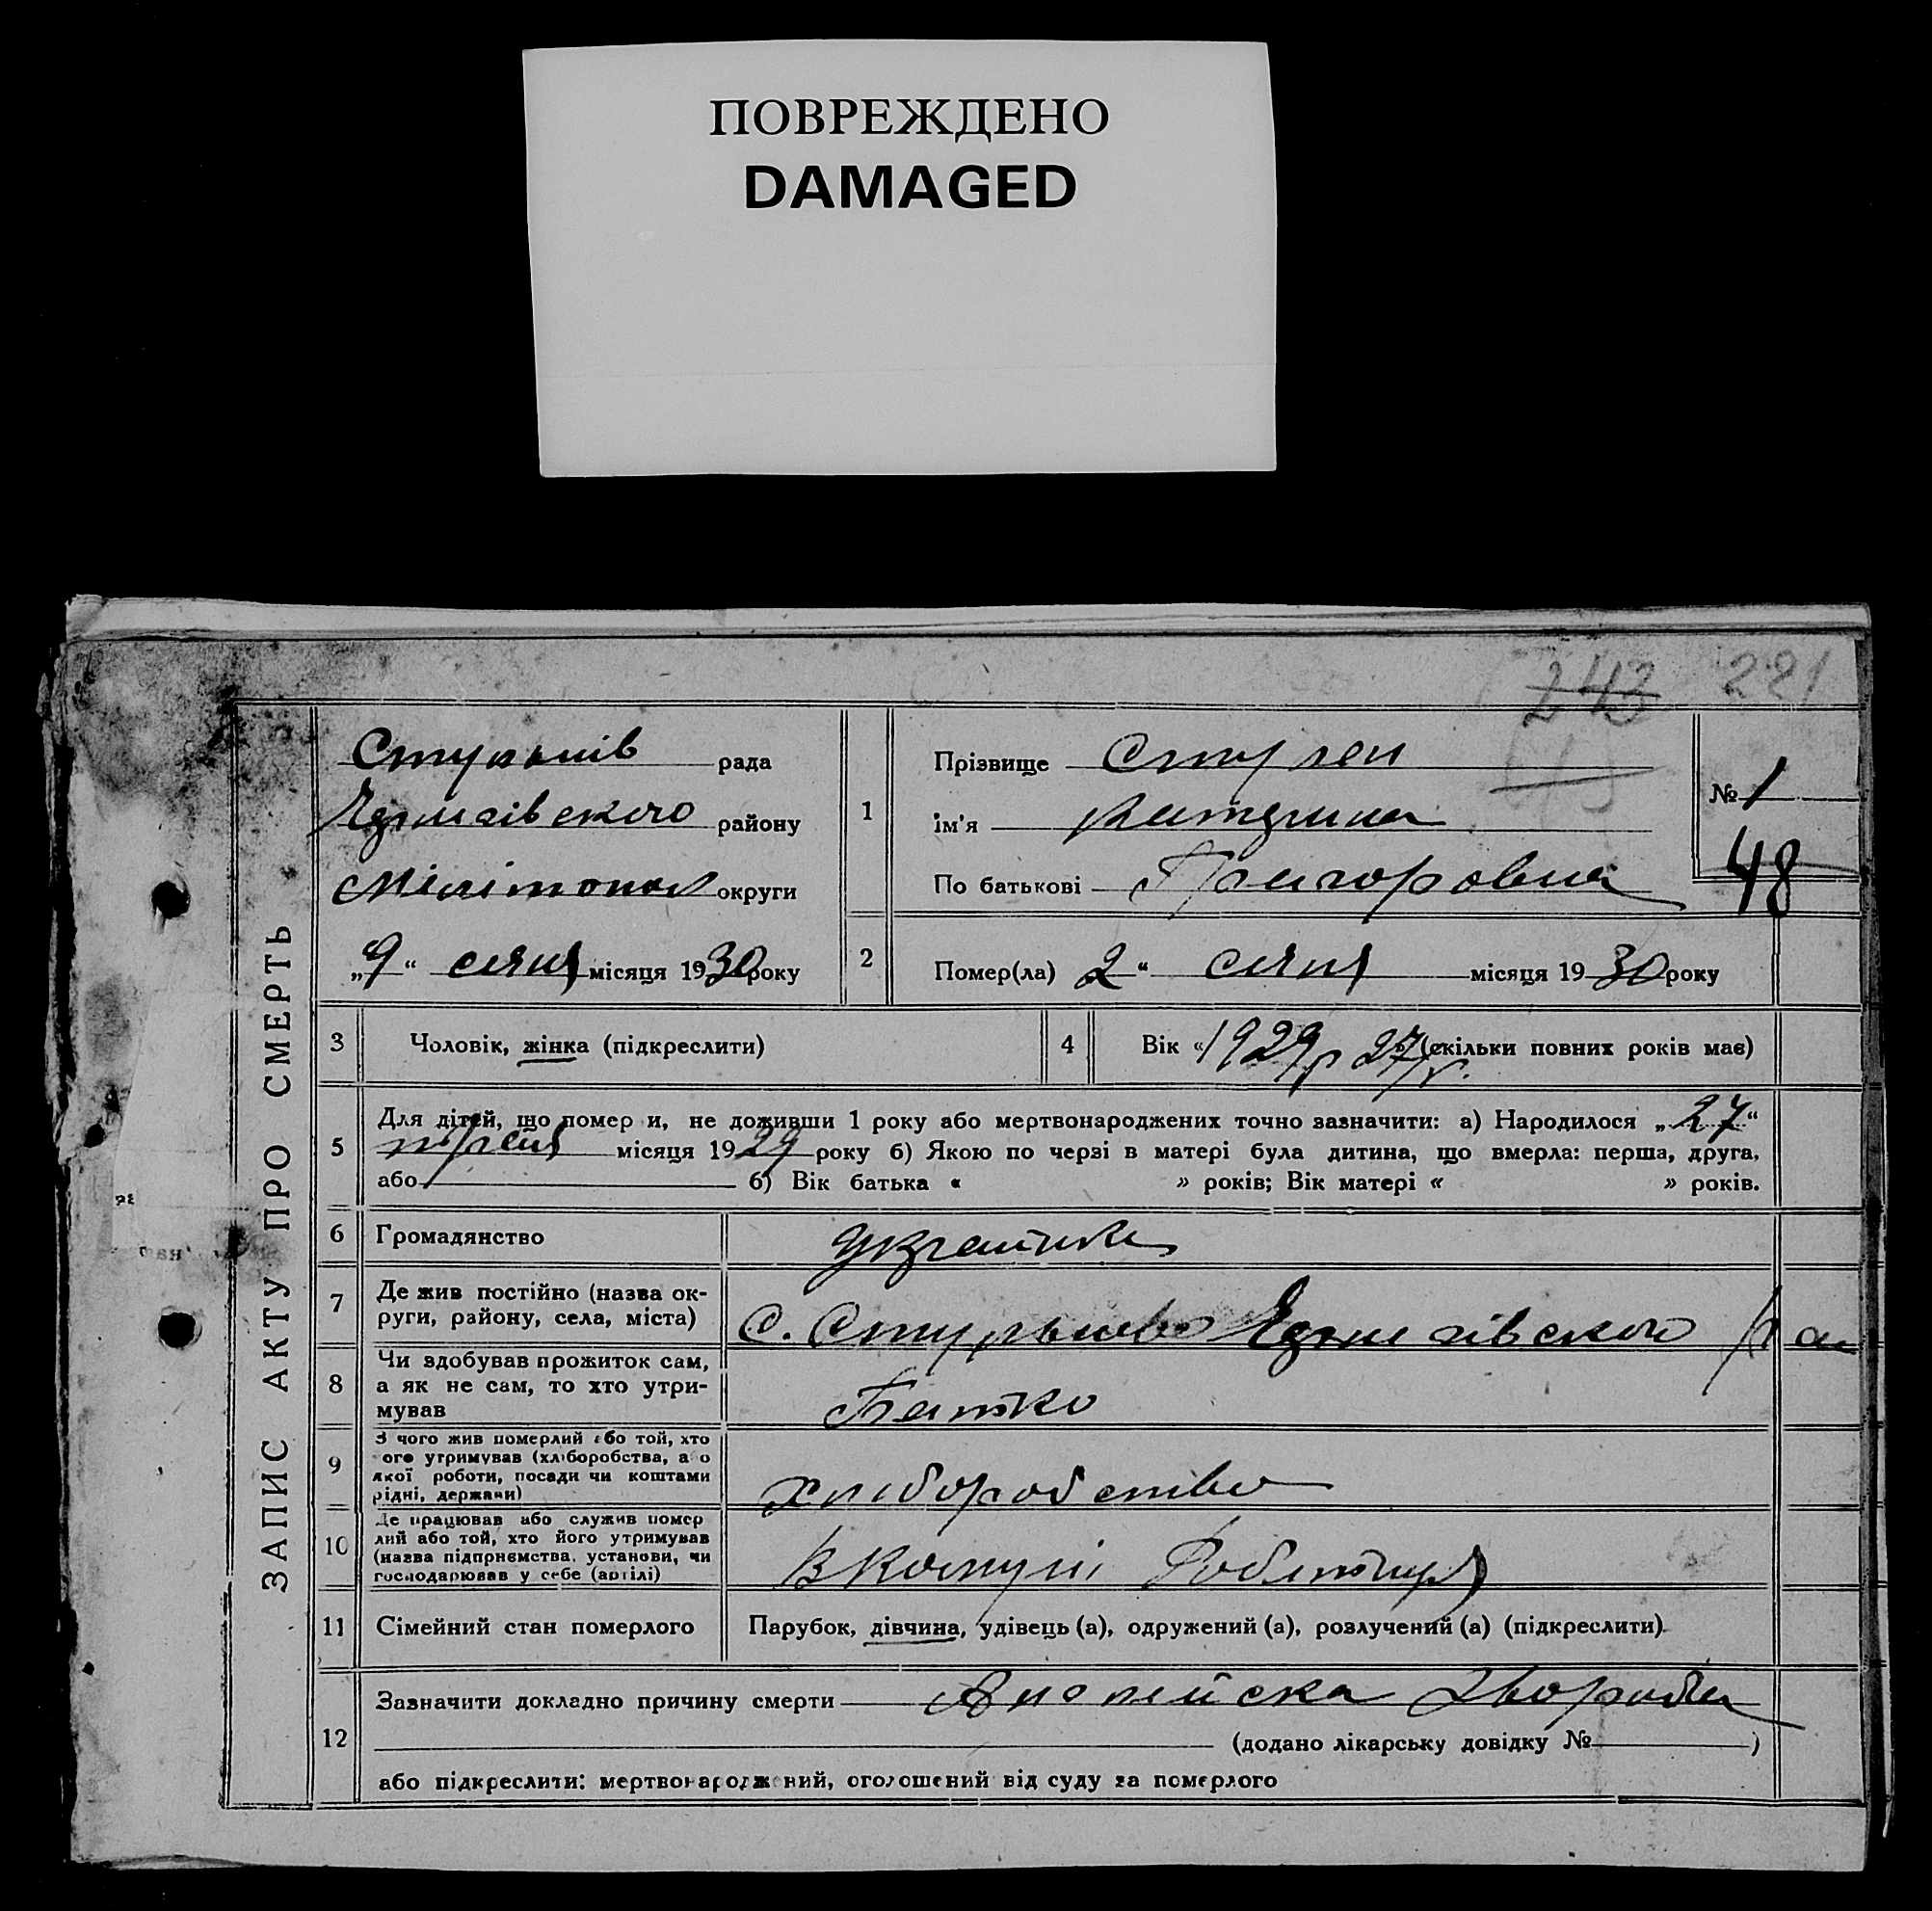 ПОВРЕЖДЕНО
DAMAGED
243 221
ЗАПИС АКТУ ПРО СМЕРТЬ
рада
району
Мелітопол округи
„9“ січня місяця 1930 року
1
Прізвище
ім'я Катерина
По батькові Григоровна
№ 1
48
2
Помер(ла) 2“ січня місяця 1930 року
3
Чоловік, жінка (підкреслити)
4
Вік « 1929 р 27/ (скільки повних років має)
5
Для дітей, що помер и, не доживши 1 року або мертвонароджених точно зазначити: а) Народилося „27“
місяця 1929 року б) Якою по черзі в матері була дитина, що вмерла: перша, друга,
або б) Вік батька « » років; Вік матері « » років.
6
Громадянство
українка
7
Де жив постійно (назва ок-
руги, району, села, міста)
С.
8
Чи здобував прожиток сам,
а як не сам, то хто утри-
мував
Батько
9
З чого жив померлий або той, хто
ого утримував (хліборобства, а о
якої роботи, посади чи коштами
рідні, держави)
хліборобство
10
Де працював або служив помер
лий або той, хто його утримував
(назва підприємства, установи, чи
господарював у себе (артілі)
В Комуні
11
Сімейний стан померлого
Парубок, дівчина, удівець (а), одружений (а), розлучений (а) (підкреслити).
12
Зазначити докладно причину смерти
(додано лікарську довідку № )
або підкреслити: мертвонароджений, оголошений від суду за померлого